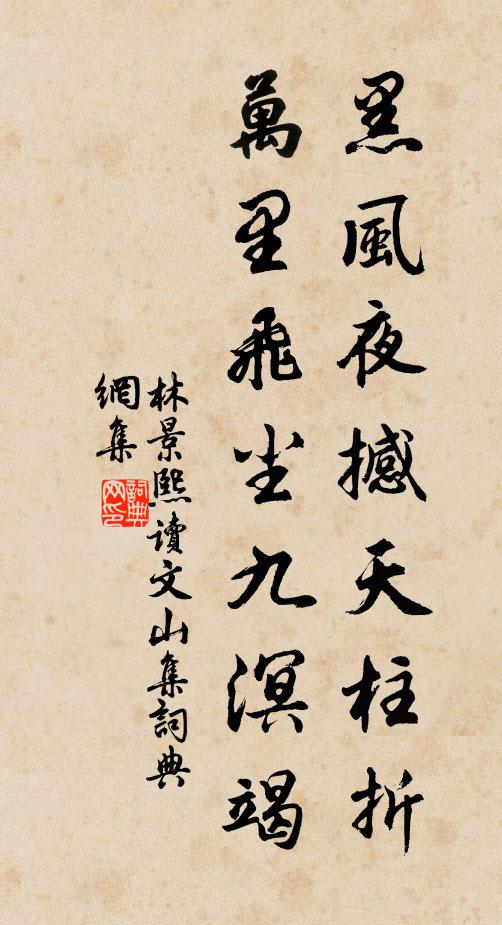 黑風夜撼天柱折
萬里飛塵九溟竭
林景熙讀文山集詞典
網集
詞典
网印